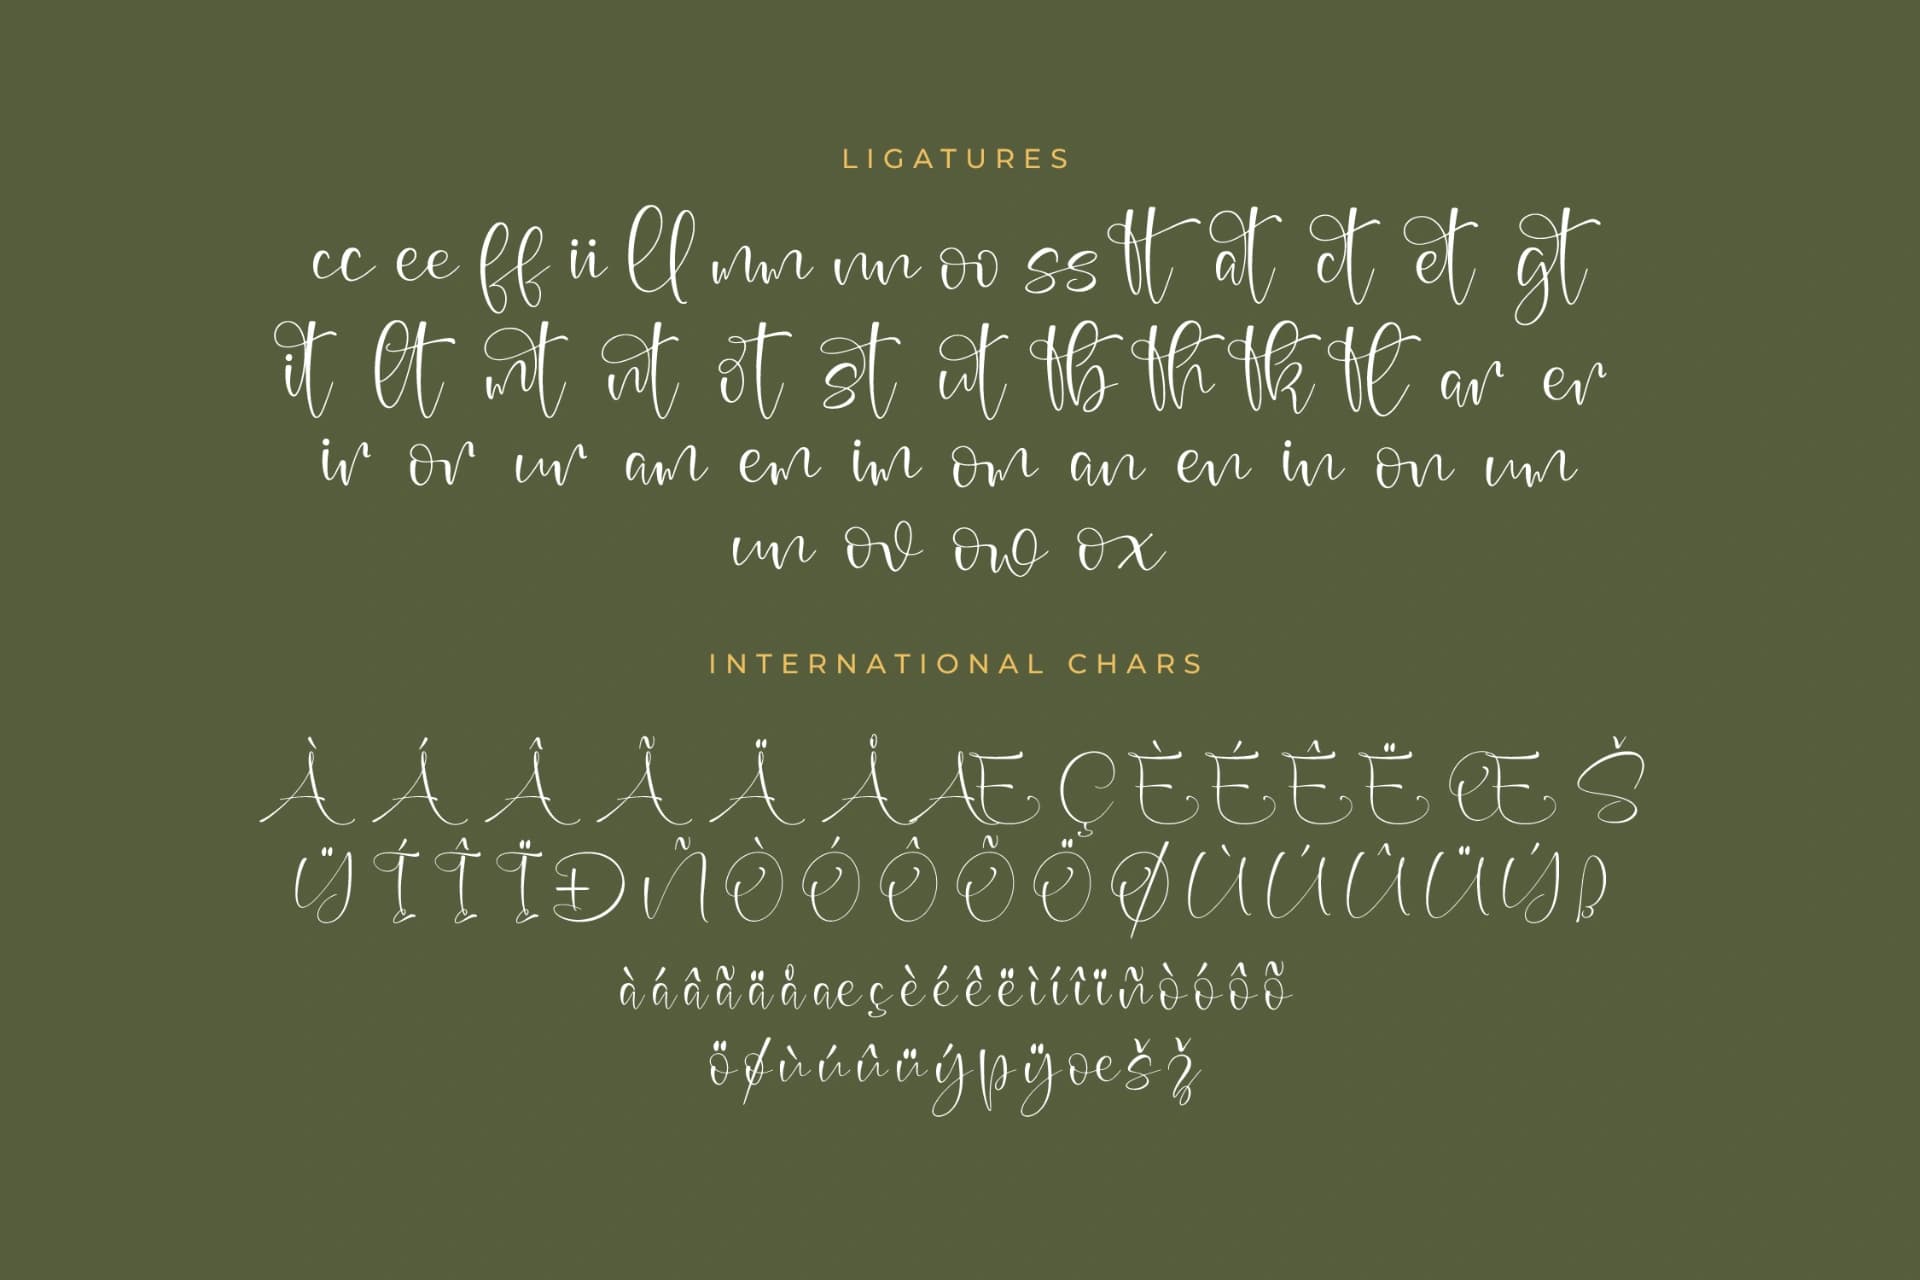 LIGATURES
cc ee ff ii ll mm nn oo ss tt at ct et gt
it lt mt nt ot st ut tb th tk tl ar er
ir or ur am em im om an en in on um
un ov ow ox
INTERNATIONAL CHARS
À Á Â Ã Ä Å Æ Ç È É Ê Ë Œ Š
Ÿ Í Î Ï Ð Ñ Ò Ó Ô Õ Ö Ø Ù Ú Û Ü Ý ß
à á â ã ä å æ ç è é ê ë ì í î ï ñ ò ó ô õ
ö ø ù ú û ü ý þ ÿ œ š ž